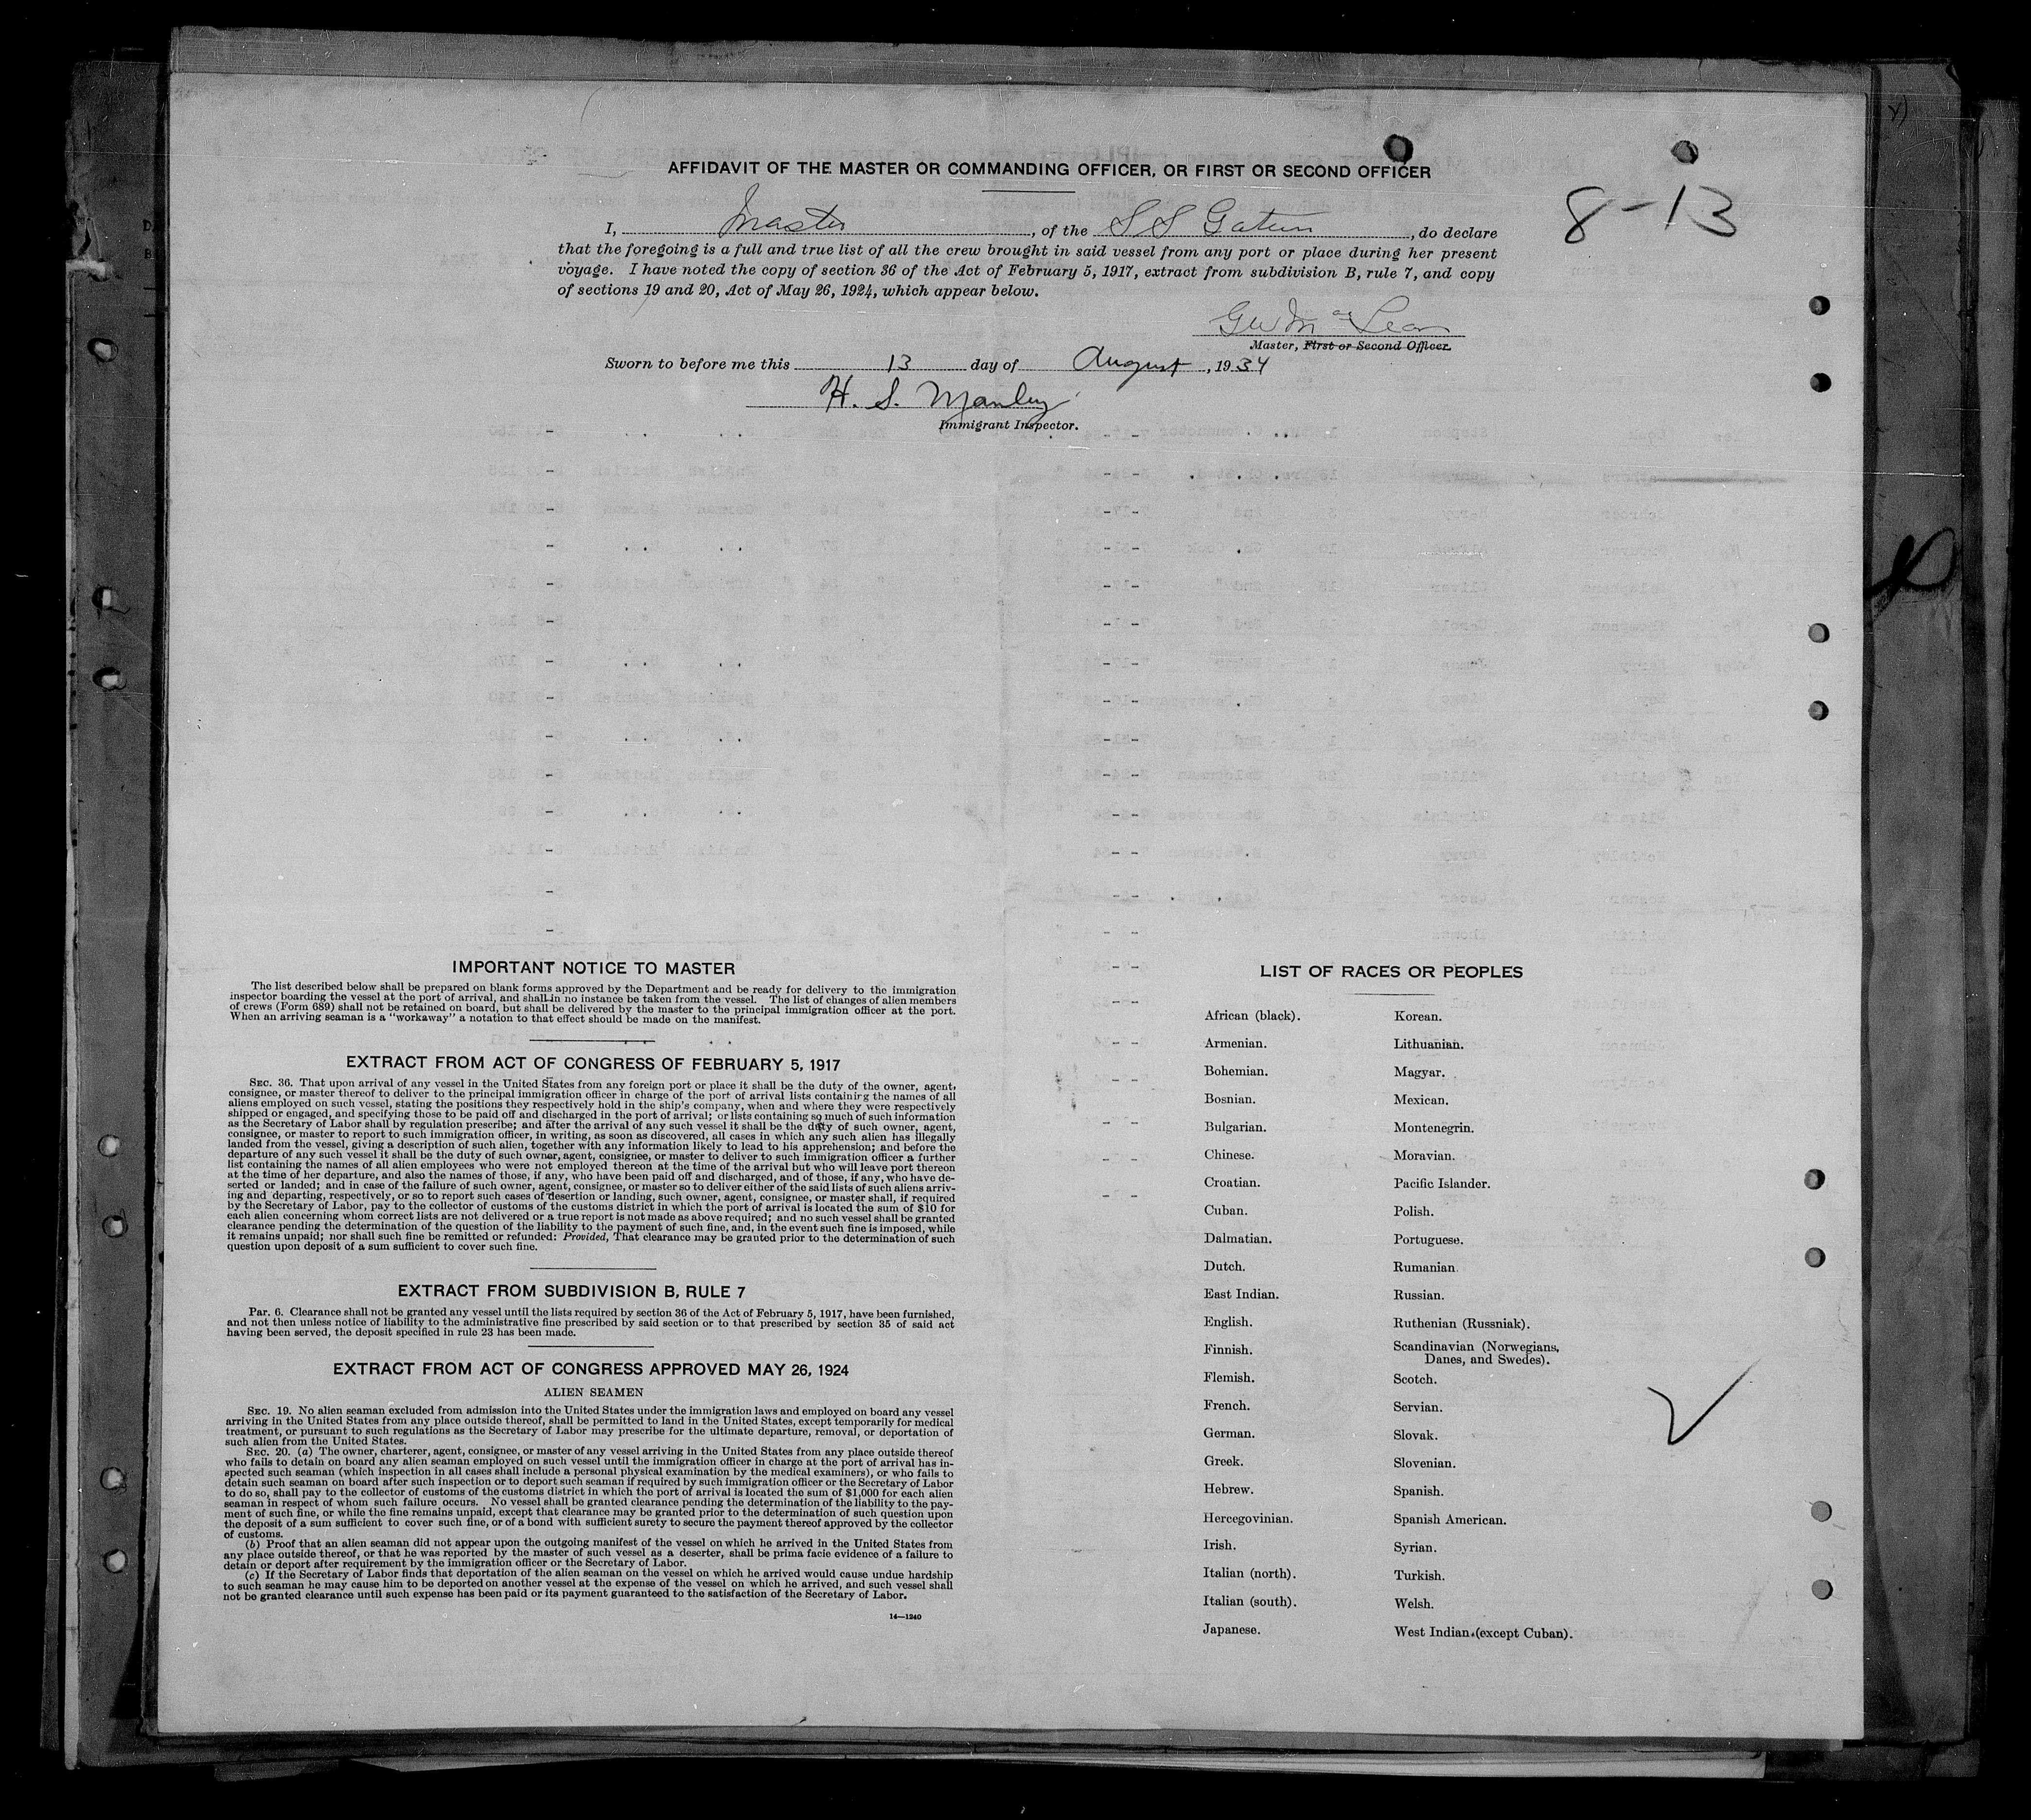 AFFIDAVIT OF THE MASTER OR COMMANDING OFFICER, OR FIRST OR SECOND OFFICER
8-13
I, Master, of the S S Gatun, do declare
that the foregoing is a full and true list of all the crew brought in said vessel from any port or place during her present
voyage. I have noted the copy of section 36 of the Act of February 5, 1917, extract from subdivision B, rule 7, and copy
of sections 19 and 20, Act of May 26, 1924, which appear below.
Master, First or Second Officer.
Sworn to before me this 13 day of August, 1934
H. S. Manley
Immigrant Inspector.
IMPORTANT NOTICE TO MASTER
The list described below shall be prepared on blank forms approved by the Department and be ready for delivery to the immigration
inspector boarding the vessel at the port of arrival, and shall in no instance be taken from the vessel. The list of changes of alien members
of crews (Form 689) shall not be retained on board, but shall be delivered by the master to the principal immigration officer at the port.
When an arriving seaman is a "workaway" a notation to that effect should be made on the manifest.
EXTRACT FROM ACT OF CONGRESS OF FEBRUARY 5, 1917
SEC. 36. That upon arrival of any vessel in the United States from any foreign port or place it shall be the duty of the owner, agent,
consignee, or master thereof to deliver to the principal immigration officer in charge of the port of arrival lists containing the names of all
aliens employed on such vessel, stating the positions they respectively hold in the ship's company, when and where they were respectively
shipped or engaged, and specifying those to be paid off and discharged in the port of arrival; or lists containing so much of such information
as the Secretary of Labor shall by regulation prescribe; and after the arrival of any such vessel it shall be the duty of such owner, agent,
consignee, or master to report to such immigration officer, in writing, as soon as discovered, all cases in which any such alien has illegally
landed from the vessel, giving a description of such alien, together with any information likely to lead to his apprehension; and before the
departure of any such vessel it shall be the duty of such owner, agent, consignee, or master to deliver to such immigration officer a further
list containing the names of all alien employees who were not employed thereon at the time of the arrival but who will leave port thereon
at the time of her departure, and also the names of those, if any, who have been paid off and discharged, and of those, if any, who have de-
serted or landed; and in case of the failure of such owner, agent, consignee, or master so to deliver either of the said lists of such aliens arriv-
ing and departing, respectively, or so to report such cases of desertion or landing, such owner, agent, consignee, or master shall, if required
by the Secretary of Labor, pay to the collector of customs of the customs district in which the port of arrival is located the sum of $10 for
each alien concerning whom correct lists are not delivered or a true report is not made as above required; and no such vessel shall be granted
clearance pending the determination of the question of the liability to the payment of such fine, and, in the event such fine is imposed, while
it remains unpaid; nor shall such fine be remitted or refunded: Provided, That clearance may be granted prior to the determination of such
question upon deposit of a sum sufficient to cover such fine.
EXTRACT FROM SUBDIVISION B, RULE 7
Par. 6. Clearance shall not be granted any vessel until the lists required by section 36 of the Act of February 5, 1917, have been furnished,
and not then unless notice of liability to the administrative fine prescribed by said section or to that prescribed by section 35 of said act
having been served, the deposit specified in rule 23 has been made.
EXTRACT FROM ACT OF CONGRESS APPROVED MAY 26, 1924
ALIEN SEAMEN
SEC. 19. No alien seaman excluded from admission into the United States under the immigration laws and employed on board any vessel
arriving in the United States from any place outside thereof, shall be permitted to land in the United States, except temporarily for medical
treatment, or pursuant to such regulations as the Secretary of Labor may prescribe for the ultimate departure, removal, or deportation of
such alien from the United States.
SEC. 20. (a) The owner, charterer, agent, consignee, or master of any vessel arriving in the United States from any place outside thereof
who fails to detain on board any alien seaman employed on such vessel until the immigration officer in charge at the port of arrival has in-
spected such seaman (which inspection in all cases shall include a personal physical examination by the medical examiners), or who fails to
detain such seaman on board after such inspection or to deport such seaman if required by such immigration officer or the Secretary of Labor
to do so, shall pay to the collector of customs of the customs district in which the port of arrival is located the sum of $1,000 for each alien
seaman in respect of whom such failure occurs. No vessel shall be granted clearance pending the determination of the liability to the pay-
ment of such fine, or while the fine remains unpaid, except that clearance may be granted prior to the determination of such question upon
the deposit of a sum sufficient to cover such fine, or of a bond with sufficient surety to secure the payment thereof approved by the collector
of customs.
(b) Proof that an alien seaman did not appear upon the outgoing manifest of the vessel on which he arrived in the United States from
any place outside thereof, or that he was reported by the master of such vessel as a deserter, shall be prima facie evidence of a failure to
detain or deport after requirement by the immigration officer or the Secretary of Labor.
(c) If the Secretary of Labor finds that deportation of the alien seaman on the vessel on which he arrived would cause undue hardship
to such seaman he may cause him to be deported on another vessel at the expense of the vessel on which he arrived, and such vessel shall
not be granted clearance until such expense has been paid or its payment guaranteed to the satisfaction of the Secretary of Labor.
14—1240
LIST OF RACES OR PEOPLES
African (black).
Armenian.
Bohemian.
Bosnian.
Bulgarian.
Chinese.
Croatian.
Cuban.
Dalmatian.
Dutch.
East Indian.
English.
Finnish.
Flemish.
French.
German.
Greek.
Hebrew.
Hercegovinian.
Irish.
Italian (north).
Italian (south).
Japanese.
Korean.
Lithuanian.
Magyar.
Mexican.
Montenegrin.
Moravian.
Pacific Islander.
Polish.
Portuguese.
Rumanian.
Russian.
Ruthenian (Russniak).
Scandinavian (Norwegians,
Danes, and Swedes).
Scotch.
Servian.
Slovak.
Slovenian.
Spanish.
Spanish American.
Syrian.
Turkish.
Welsh.
West Indian (except Cuban).